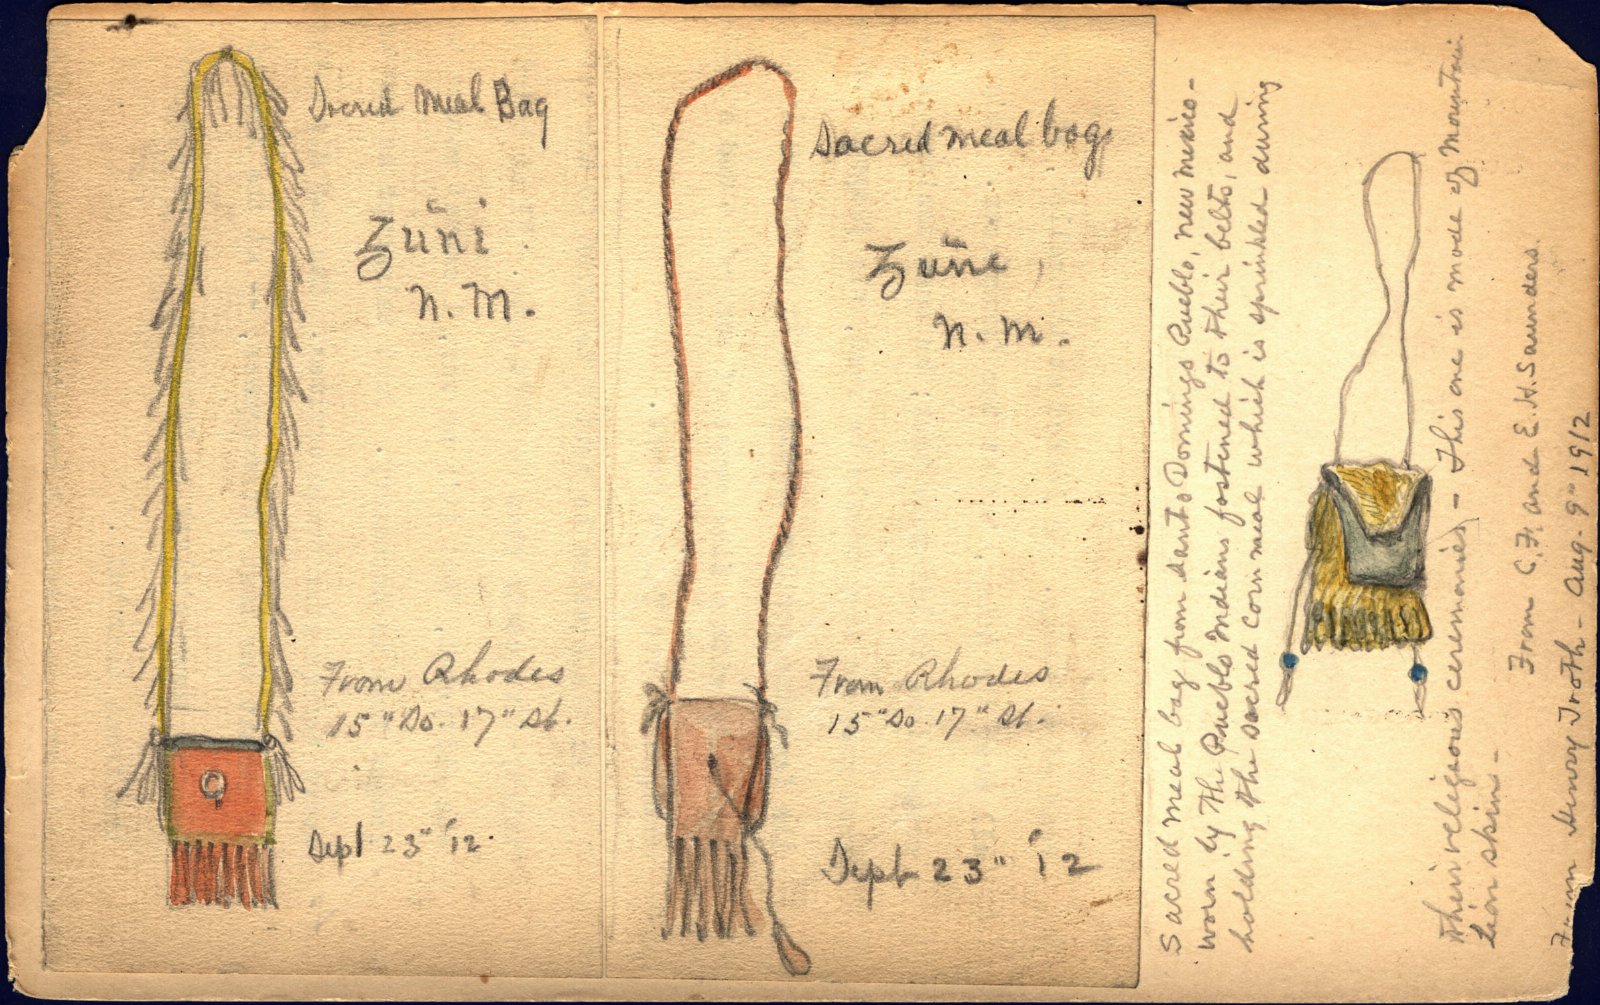 Sacred Meal Bag
Zuñi
N. M.
From Rhodes
15" So. 17" St.
Sept 23" '12.
Sacred meal bag
Zuñi,
N. M.
From Rhodes
15" So. 17" St.
Sept 23" '12
Sacred Meal bag from Santo Domingo Pueblo, New Mexico -
worn by the Pueblo Indians fastened to their belts, and
holding the sacred corn meal which is sprinkled during
their religious ceremonies - This one is made of mountain
lion skin -
From C. F. and E. H. Saunders.
From Henry Troth - Aug. 9" 1912